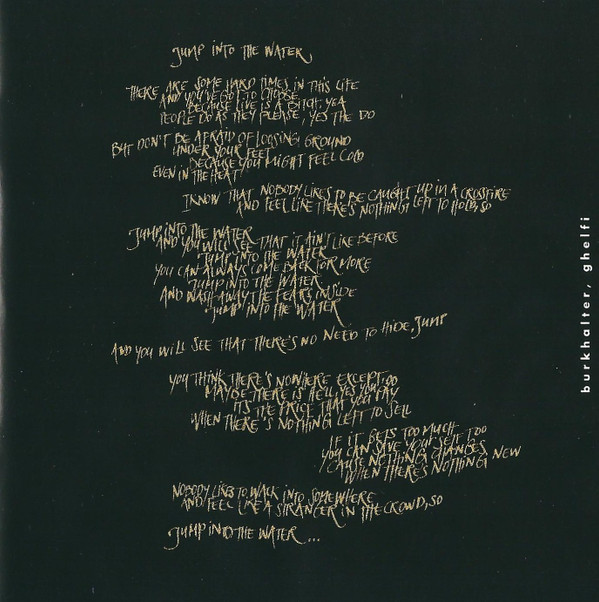 JUMP INTO THE WATER
THERE ARE SOME HARD TIMES IN THIS LIFE
AND YOU'VE GOT TO CHOOSE
BECAUSE LIVE IS A BITCH, YEA
PEOPLE DO AS THEY PLEASE, YES THE DO
BUT DON'T BE AFRAID OF LOOSING GROUND
UNDER YOUR FEET
BECAUSE YOU MIGHT FEEL COLD
EVEN IN THE HEAT
I KNOW THAT NOBODY LIKES TO BE CAUGHT UP IN A CROSSFIRE
AND FEEL LIKE THERE'S NOTHING LEFT TO HOLD, SO
JUMP INTO THE WATER
AND YOU WILL SEE THAT IT AIN'T LIKE BEFORE
JUMP INTO THE WATER
YOU CAN ALWAYS COME BACK FOR MORE
JUMP INTO THE WATER
AND WASH AWAY THE FEARS INSIDE
JUMP INTO THE WATER
AND YOU WILL SEE THAT THERE'S NO NEED TO HIDE, JUMP
YOU THINK THERE'S NOWHERE EXCEPT, GO
MAYBE THERE IS HELL, YES YOU DO
IT'S THE PRICE THAT YOU PAY
WHEN THERE'S NOTHING LEFT TO SELL
IF IT GETS TOO MUCH
YOU CAN SAVE YOUR SELF TOO
CAUSE NOTHING CHANGES
WHEN THERE'S NOTHING NEW
NOBODY LIKES TO WALK INTO SOMEWHERE
AND FEEL LIKE A STRANGER IN THE CROWD, SO
JUMP INTO THE WATER ...
burkhalter, ghelfi